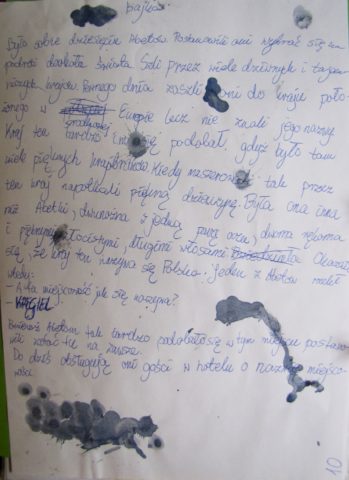 Bajka
Było sobie dziesięciu Abetów. Postanowili oni wybrać się w
podróż dookoła świata. Szli przez wiele dziwnych i
krajów. Pewnego dnia zaszli oni do kraju poło-
żonego w Europie lecz nie znali jego nazwy.
Kraj ten bardzo im się podobał, gdyż było tam
wiele pięknych krajobrazów. Kiedy maszerowali tak przez
ten kraj napotkali piękną dziewczynę. Była ona inna
niż Abetki, z jedną parą oczu, dwoma rękoma
i pięknymi złocistymi, długimi włosami. Okazało
się, że kraj ten nazywa się Polska. Jeden z Abetów
wtedy:
- A ta miejscowość jak się nazywa?
- WĄGIEL
Ponieważ Abetom tak bardzo podobało się w tym miejscu postano-
wili zostać tu na zawsze.
Do dziś obsługują oni gości w hotelu o nazwie miejsco-
wości.
10